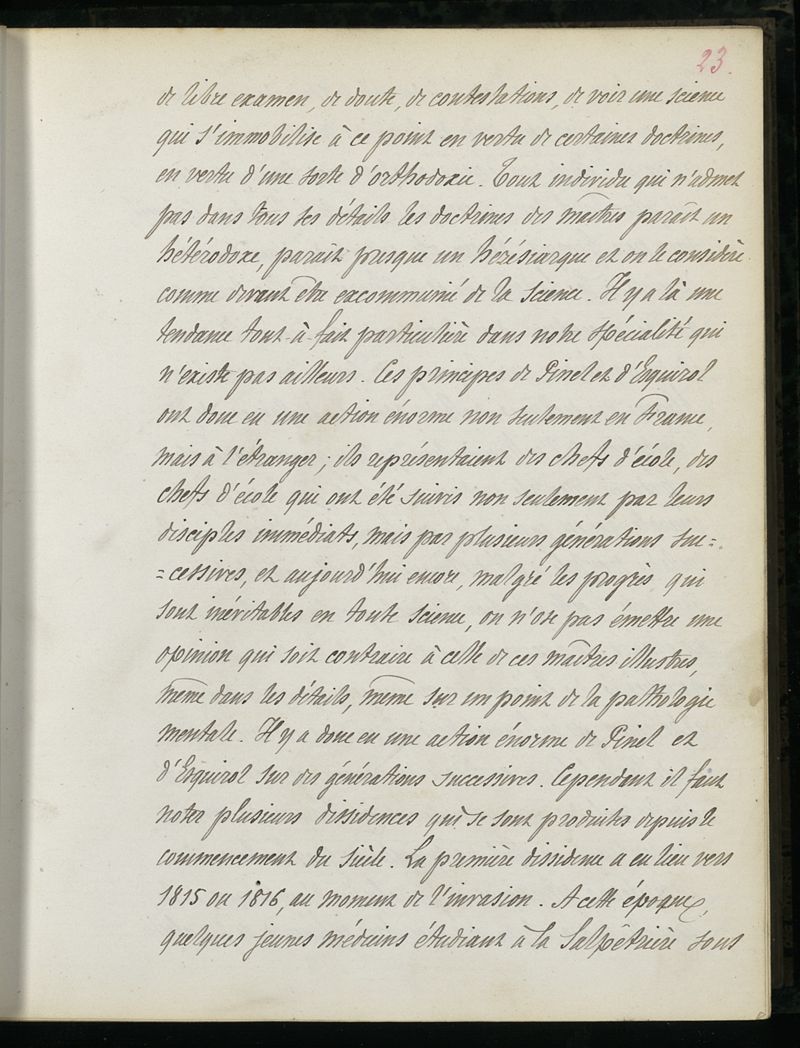 23.
de libre examen, de doute, de contestations, de voir une science
qui s'immobilise à ce point en vertu de certaines doctrines,
en vertu d'une sorte d'orthodoxie. Tout individu qui n'admet
pas dans tous ses détails les doctrines des maîtres paraît un
hétérodoxe, paraît presque un hérésiarque et on le considère
comme devant être excommunié de la science. Il y a là une
tendance tout-à-fait particulière dans notre spécialité qui
n'existe pas ailleurs. Ces principes de Pinel et d'Esquirol
ont donc eu une action énorme non seulement en France,
mais à l'étranger; ils représentaient des chefs d'école, des
chefs d'école qui ont été suivis non seulement par leurs
disciples immédiats, mais par plusieurs générations suc=
=cessives, et aujourd'hui encore, malgré les progrès qui
sont inévitables en toute science, on n'ose pas émettre une
opinion qui soit contraire à celle de ces maîtres illustres,
même dans les détails, même sur un point de la pathologie
mentale. Il y a donc eu une action énorme de Pinel et
d'Esquirol sur des générations successives. Cependant il faut
noter plusieurs dissidences qui se sont produites depuis le
commencement du siècle. La première dissidence a eu lieu vers
1815 ou 1816, au moment de l'invasion. A cette époque,
quelques jeunes médecins étudiant à la Salpêtrière sous